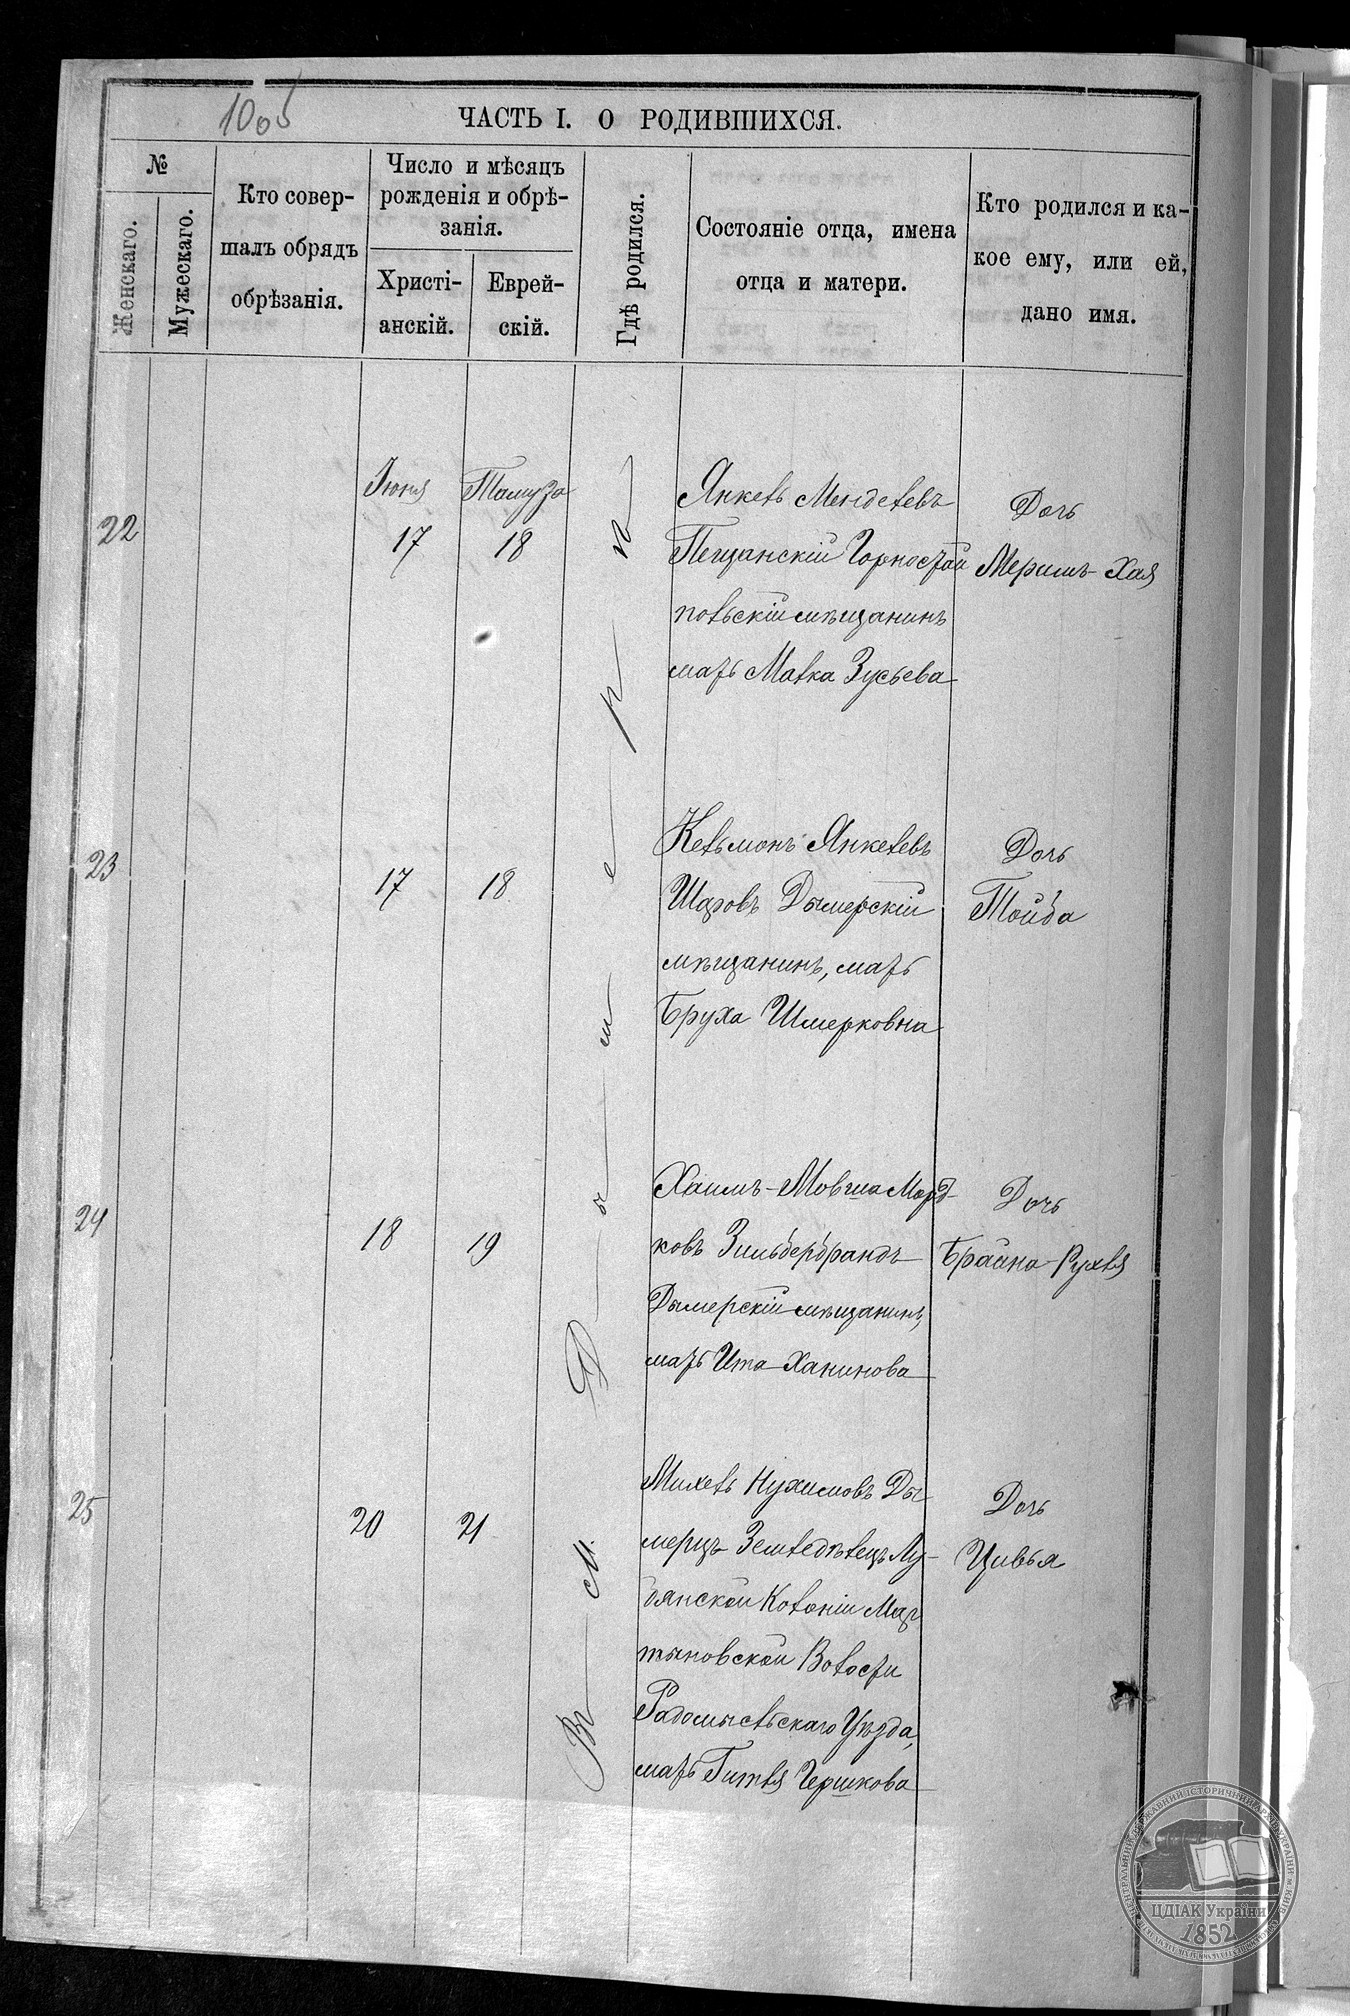 1005
ЧАСТЬ I. О РОДИВШИХСЯ.
№
Женскаго.
Мужескаго.
Кто совер-
шалъ обрядъ
обрѣзанія.
Число и мѣсяцъ
рожденія и обрѣ-
занія.
Христі-
анскій.
Еврей-
скій.
Гдѣ родился.
Состояніе отца, имена
отца и матери.
Кто родился и ка-
кое ему, или ей,
дано имя.
Въ м. Дымерѣ
22
Іюня
17
Тамуза
18
Янкель Менделевъ
Пещанскій Горностай
польскій мѣщанинъ
мать Малка Зусьева
Дочь
Меримъ-Хая
23
17
18
Кельмонъ Янкелевъ
Шаровъ Дымерскій
мѣщанинъ, мать
Бруха Шмерковна
Дочь
Тойба
24
18
19
Хаимъ-Мовша Морд-
ковъ Зильбербрандъ
Дымерскій мѣщанинъ,
мать Ита Ханинова
Дочь
Брайна-Рухля
25
20
21
Михель Нухимовъ Ды-
мерцъ Земледѣлецъ Лу-
бянской Колоніи Мар
тыновской Волости
Радомысльскаго Уѣзда,
мать Гитля Гершкова
Дочь
Цивья
ЦДІАК України
1852